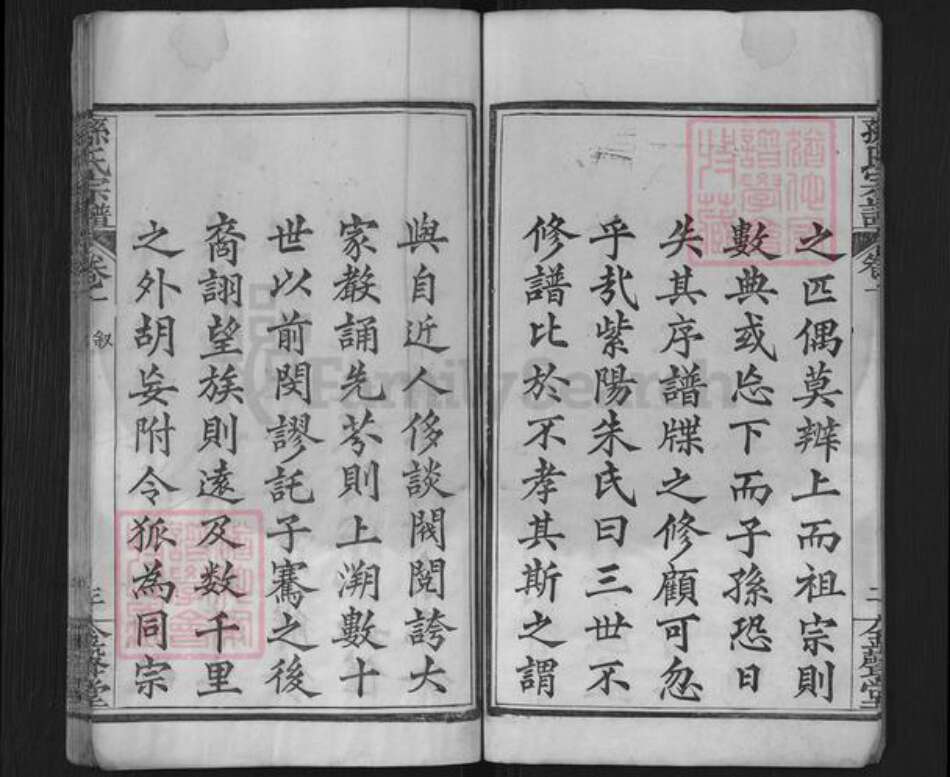 孫氏宗譜
卷一
二
金聲堂
之匹偶莫辨上而祖宗則
數典或忘下而子孫恐日
失其序譜牒之修顧可忽
乎哉紫陽朱氏曰三世不
修譜比於不孝其斯之謂
與自近人侈談閥閱誇大
家教誦先芬則上溯數十
世以前閔謬託子騫之後
裔詡望族則遠及数千里
之外胡妄附令狐為同宗
孫氏宗譜
卷一
叙
三
金聲堂
FamilySearch